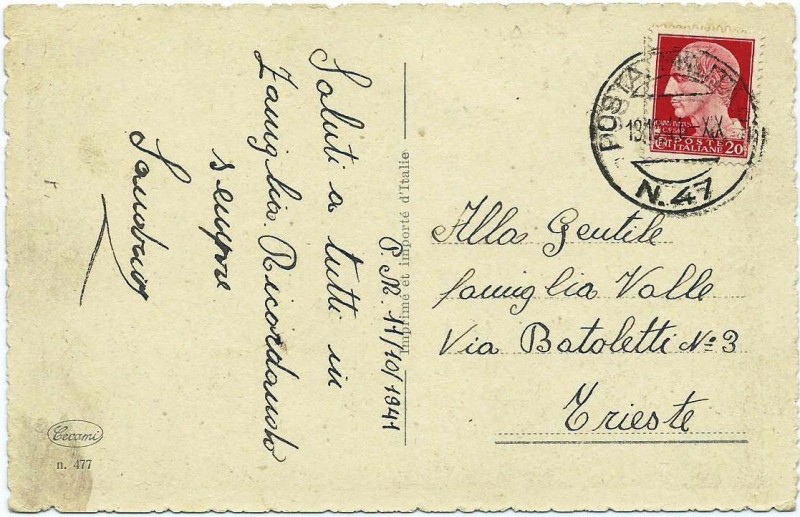 Saluti a tutti in
famiglia. Ricordando
sempre
P. M. 17/10/1941
Imprimé et importé d'Italie
Cecami
n. 477
POSTA MILIT
N. 47
XX
POSTE
ITALIANE
CENT 20
Alla Gentile
famiglia Valle
Via Batoletti No 3
Trieste